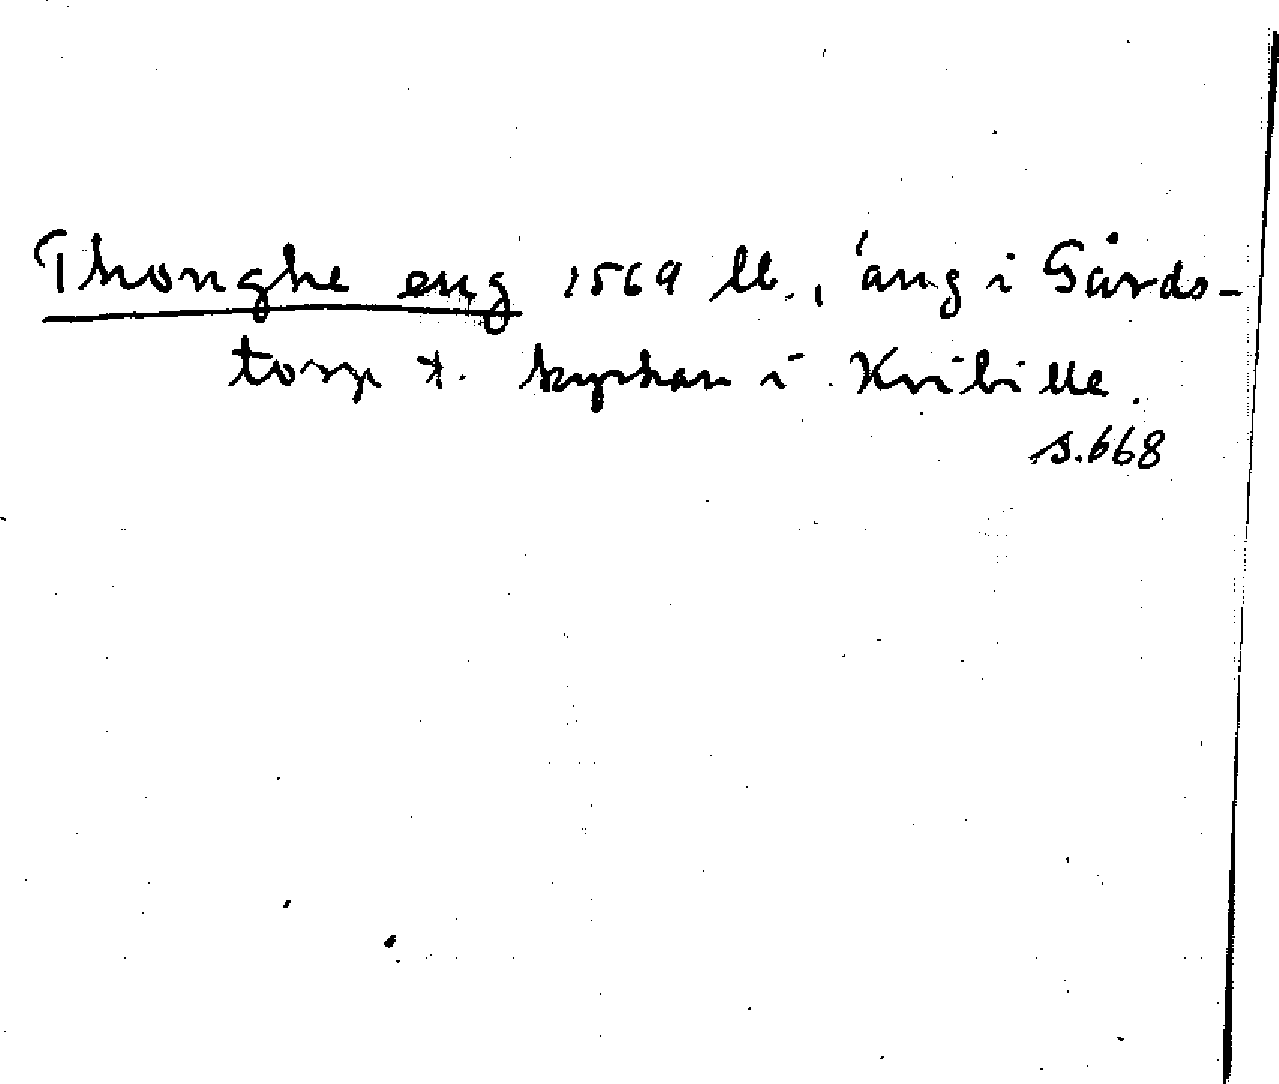 Thonghe eng 1569 lb., äng i Gårds-
torp t. kyrkan i Kvibille.
s.668